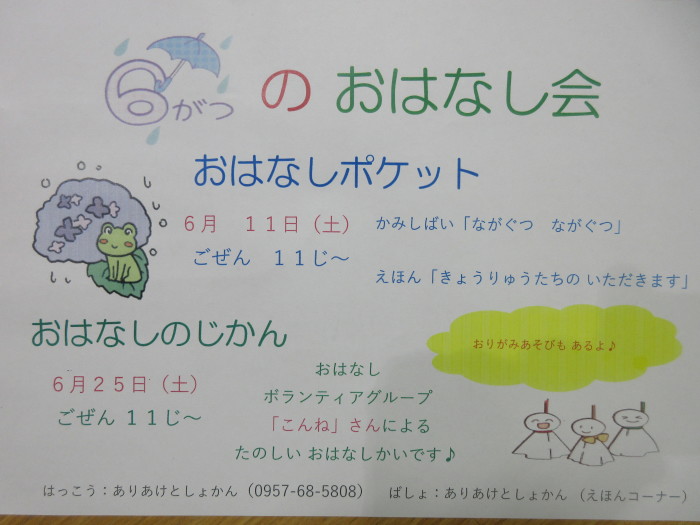 6がつ の おはなし会
おはなしポケット
6月 11日（土） かみしばい「ながぐつ ながぐつ」
ごぜん 11じ～
えほん「きょうりゅうたちの いただきます」
おはなしのじかん
6月25日（土）
ごぜん 11じ～
おはなし
ボランティアグループ
「こんね」さんによる
たのしい おはなしかいです♪
おりがみあそびも あるよ♪
はっこう：ありあけとしょかん（0957-68-5808） ばしょ：ありあけとしょかん （えほんコーナー）